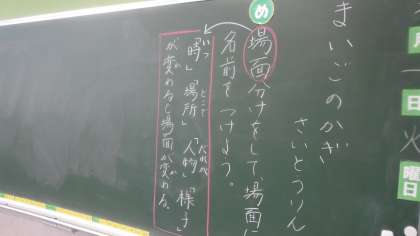 月
一
日
火
曜
日
まいごのかぎ
さいとうりん
め
場面分けをして、場面に
名前をつけよう。
いつ
どこで
だれが
「時」「場所」「人物」「様子」
が変わると場面が変わる。